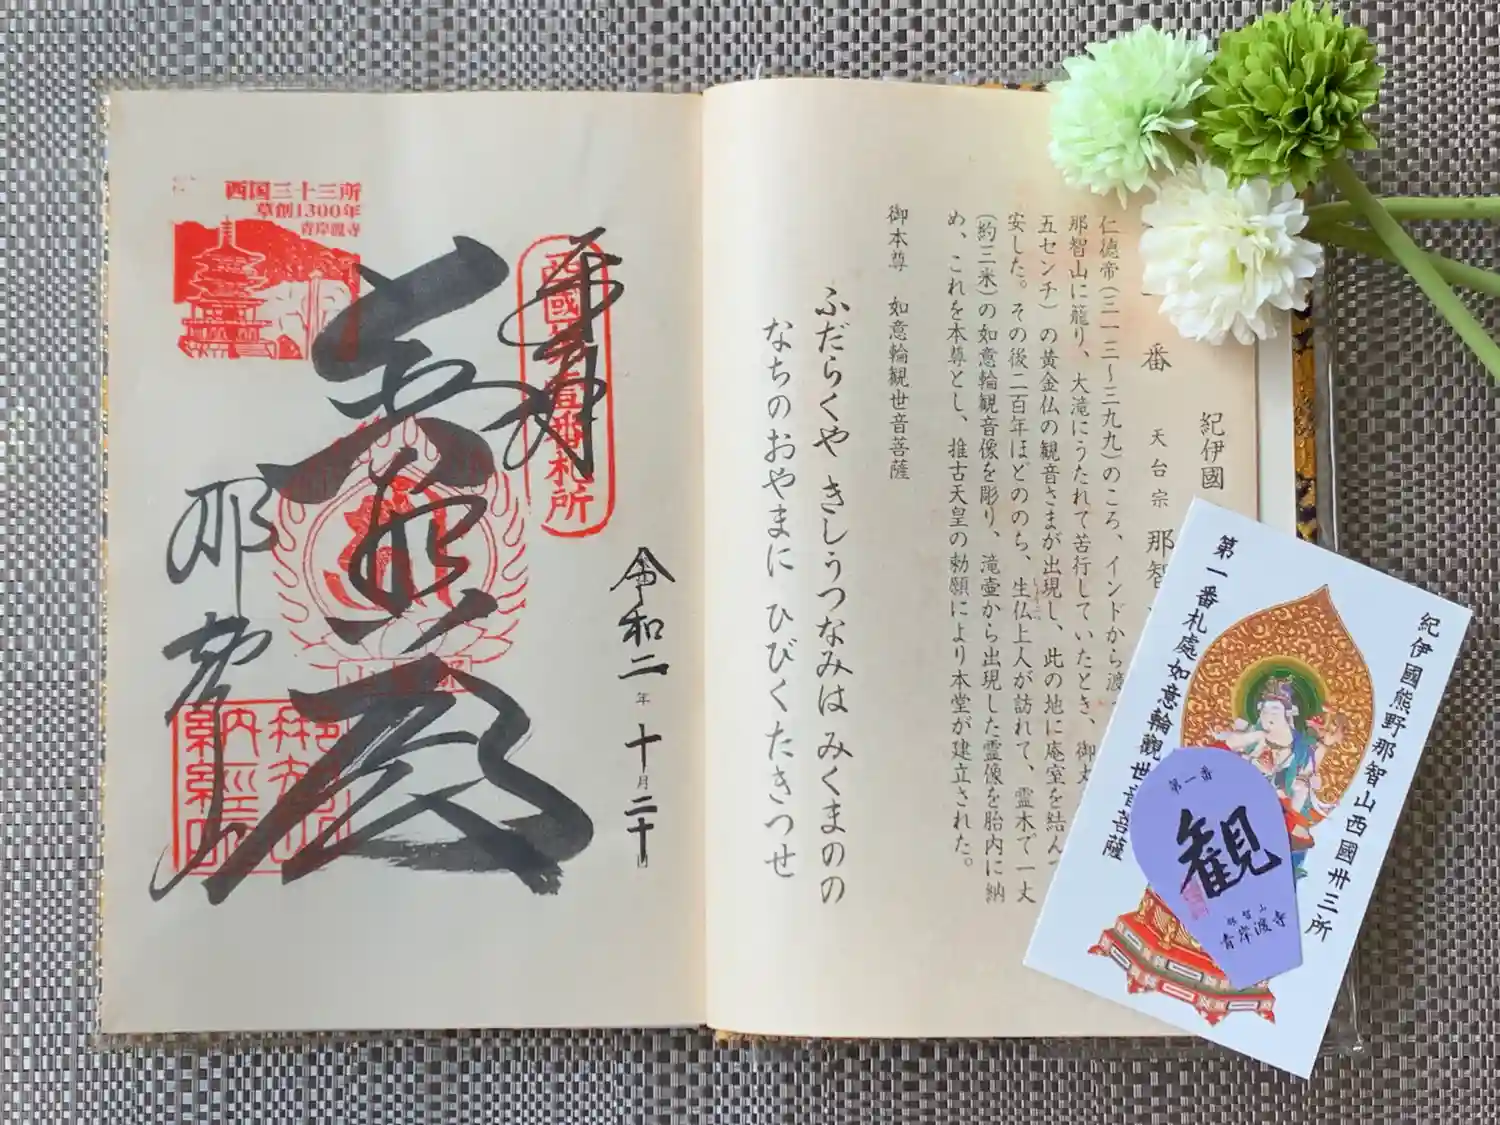 西国三十三所
草創1300年
青岸渡寺
奉拝
西國第壹番札所
令和二年十月二十日
那智山
納経印
紀伊國
一番 天台宗 那智
仁徳帝(三一三〜三九九)のころ、インドから渡
那智山に籠り、大滝にうたれて苦行していたとき、御丈
五センチ)の黄金仏の観音さまが出現し、此の地に庵室を結ん
安した。その後二百年ほどのち、生仏上人が訪れて、霊木で一丈
(約三米)の如意輪観音像を彫り、滝壺から出現した霊像を胎内に納
め、これを本尊とし、推古天皇の勅願により本堂が建立された。
御本尊 如意輪観世音菩薩
ふだらくや きしうつなみは みくまのの
なちのおやまに ひびくたきつせ
紀伊國熊野那智山西國卅三所
第一番札處如意輪觀世音菩薩
第一番
観
那智山
青岸渡寺